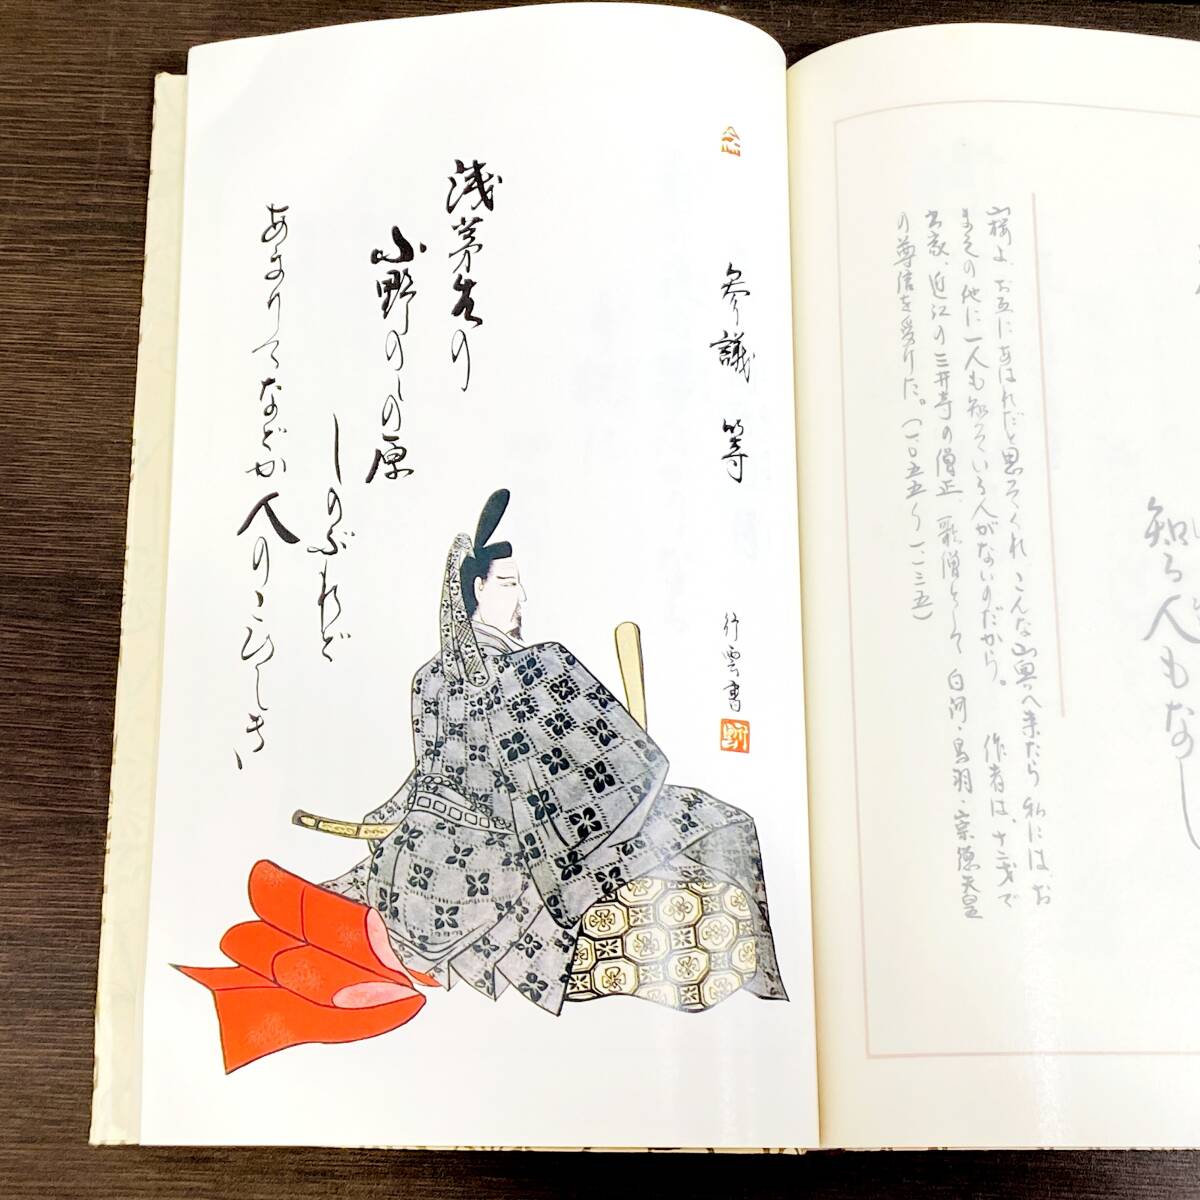 知る人もなし
山桜よ、お互にあはれだと思ってくれ、こんな山奥へ来たら私には、お
まえの他に一人も知っている人がないのだから。 作者は、十二才で
出家、近江の三井寺の僧正、歌僧として白河・鳥羽・崇徳天皇
の尊信を受けた。(一〇五五〜一一三五)
参議 等
行雲書
浅茅生の
小野のしの原
しのぶれど
あまりてなどか人のこひしき